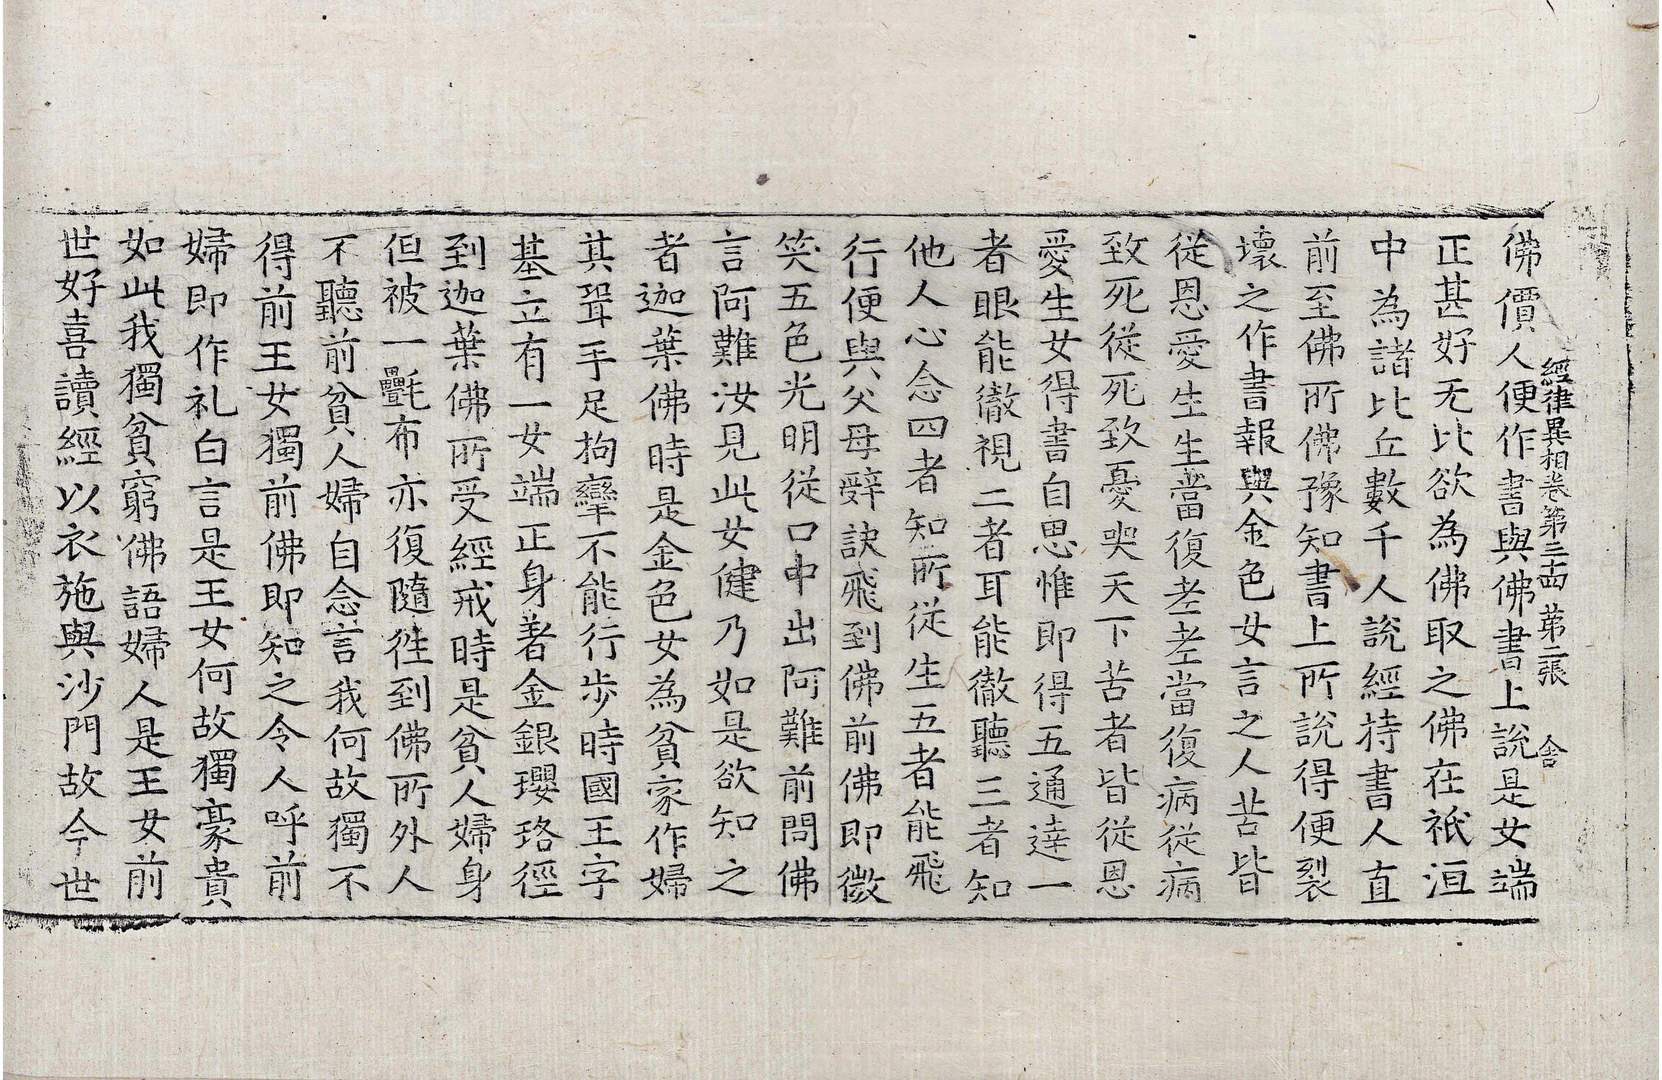 經律異相卷第三十四 第二張 舍
佛價人便作書與佛書上說是女端
正甚好无比欲為佛取之佛在祇洹
中為諸比丘數千人說經持書人直
前至佛所佛豫知書上所說得便裂
壞之作書報與金色女言之人苦皆
從恩愛生生當復老老當復病從病
致死從死致憂哭天下苦者皆從恩
愛生女得書自思惟即得五通達一
者眼能徹視二者耳能徹聽三者知
他人心念四者知所從生五者能飛
行便與父母辝訣飛到佛前佛即微
笑五色光明從口中出阿難前問佛
言阿難汝見此女健乃如是欲知之
者迦葉佛時是金色女為貧家作婦
其聟手足拘攣不能行步時國王字
基立有一女端正身著金銀瓔珞徑
到迦葉佛所受經戒時是貧人婦身
但被一㲲布亦復隨徃到佛所外人
不聽前貧人婦自念言我何故獨不
得前王女獨前佛即知之令人呼前
婦即作礼白言是王女何故獨豪貴
如此我獨貧窮佛語婦人是王女前
世好喜讀經以衣施與沙門故今世